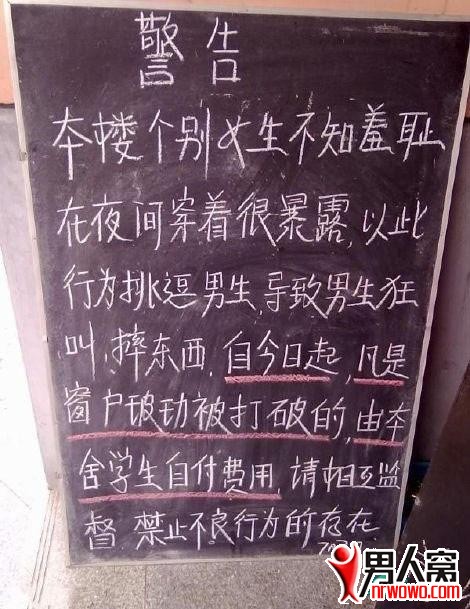 警告
本楼个别女生不知羞耻
在夜间穿着很暴露,以此
行为挑逗男生,导致男生狂
叫,摔东西,自今日起,凡是
窗户玻玏被打破的,由本
舍学生自付费用,请相互监
督 禁止不良行为的存在
男人窝
nrwowo.com